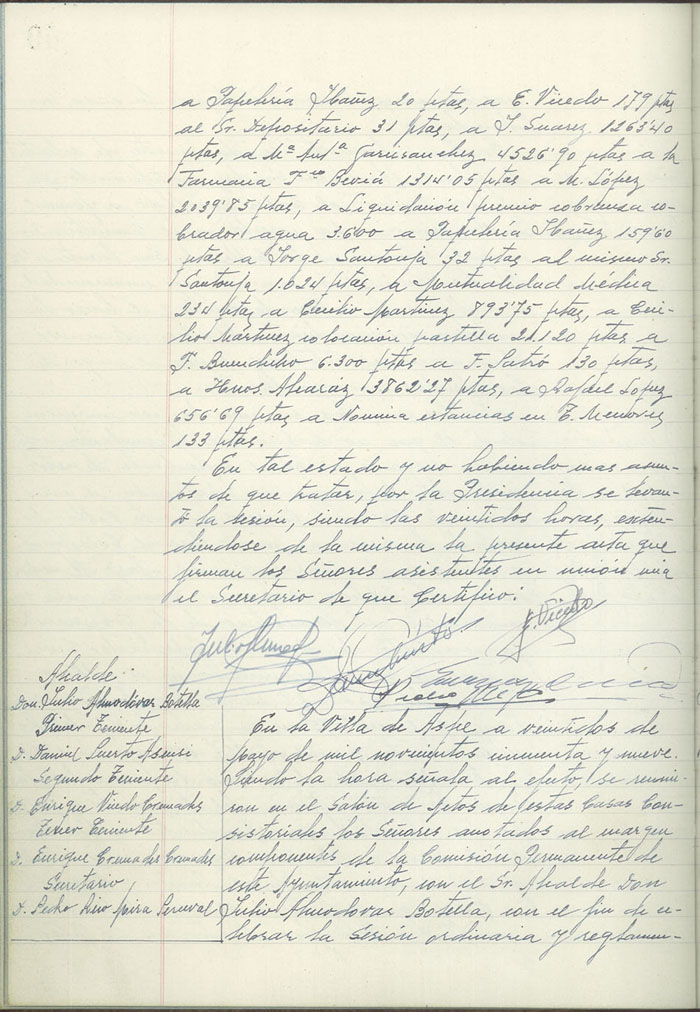 a Papelería Ibañez 20 ptas, a E. Vicedo 179 ptas
al Sr. Depositario 31 ptas, a J. Suarez 1263'40
ptas, a Mª Aulª Garrisanchez 4526'90 ptas a la
Farmacia Fco Beviá 1314'05 ptas a M. López
2039'85 ptas, a Liquidación premio cobranza co-
brador agua 3.600 a Papelería Ibañez 159'60
ptas a Jorge Santonja 32 ptas al mismo Sr.
Santonja 1.024 ptas, a Mutualidad Médica
234 ptas, a Emilio Martinez 893'75 ptas, a Emi-
lio Martinez colocación pastilla 21.120 ptas a
F. 6.300 ptas a F. Satró 130 ptas,
a Hnos. Alcaráz 3862'27 ptas, a Rafael Lopez
656'69 ptas a Nomina estancias en T. Menores
133 ptas.
En tal estado y no habiendo mas asun-
tos de que tratar, por la Presidencia se levan-
tó la sesión, siendo las veintidos horas, exten-
diéndose de la misma la presente acta que
firman los Señores asistentes en unión mia
el Secretario de que Certifico:
E. Vicedo
Alcalde
Don. Julio Almodóvar Botella
Primer Teniente
D. Daniel Puerto Asensi
Segundo Teniente
D. Enrique Vicedo Cremades
Tercer Teniente
D. Enrique Cremades Cremades
Secretario
D. Pedro Mira
En la Villa de Aspe a veintidos de
Mayo de mil novecientos cincuenta y nueve.
Siendo la hora señala al efecto, se reunie-
ron en el Salón de Actos de estas Casas Con-
sistoriales los Señores anotados al margen
componentes de la Comisión Permanente de
este Ayuntamiento, con el Sr. Alcalde Don
Julio Almodovar Botella, con el fin de ce-
lebrar la Sesión ordinaria y reglamen-